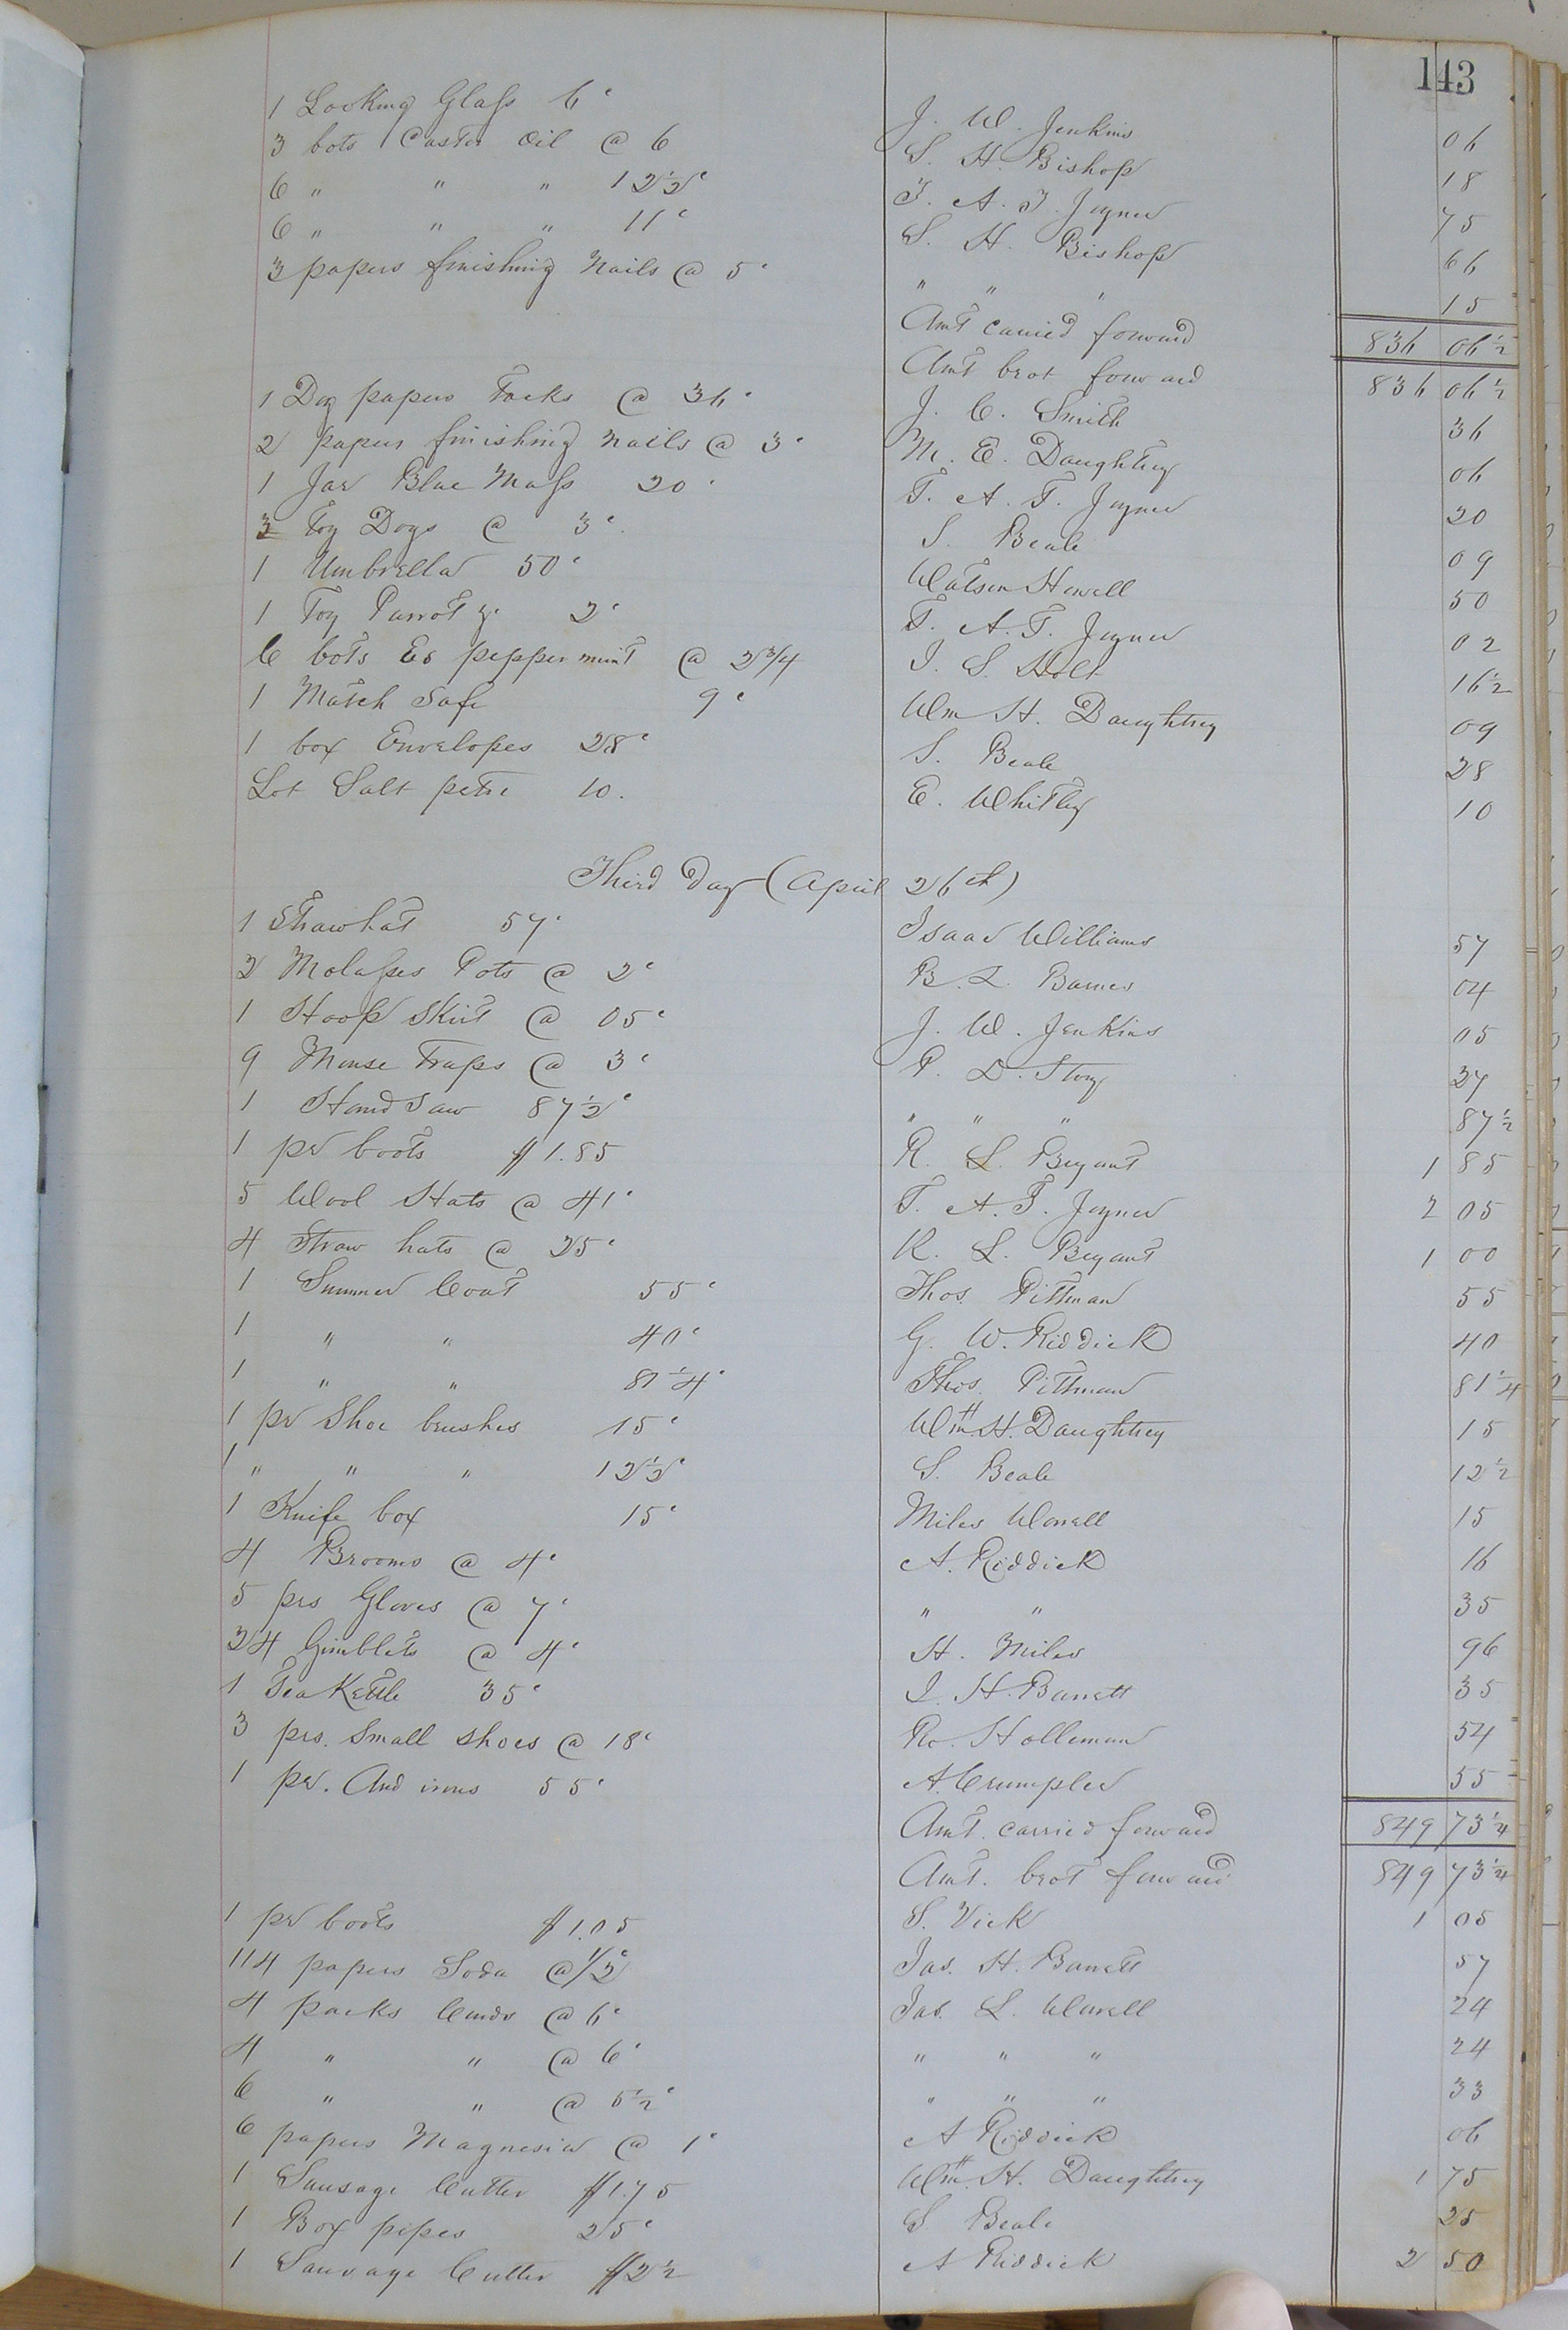 143
1 Looking Glass 6c J. W. Jenkins 06
3 bots Caster Oil @ 6 S. H. Bishop 18
6 " " " 12½c T. A. T. Joyner 75
6 " " " 11c S. H. Bishop 66
3 papers finishing Nails @ 5c " " " 15
Amt carried forward 836 06½
Amt brot forward 836 06½
1 Doz papers Tacks @ 36c J. C. Smith 36
2 papers finishing nails @ 3c M. E. Daughtrey 06
1 Jar Blue Mass 20c T. A. T. Joyner 20
3 Toy Dogs @ 3c S. Beale 09
1 Umbrella 50c Watson Howell 50
1 Toy Parrot &c 2c T. A. T. Joyner 02
6 bots Es peppermint @ 2¾ J. S. Holt 16½
1 Match Safe 9c Wm H. Daughtrey 09
1 box Envelopes 28c S. Beale 28
Lot Salt petre 10. E. Whitley 10
Third Day (April 26th)
1 Strawhat 57c Isaac Williams 57
2 Molasses Pots @ 2c B. L. Barnes 04
1 Hoop Skirt @ 05c J. W. Jenkins 05
9 Mouse Traps @ 3c P. D. Story 27
1 Hand Saw 87½c " " " 87½
1 pr boots $1.85 R. S. Bryant 1 85
5 Wool Hats @ 41c T. A. T. Joyner 2 05
4 Straw hats @ 25c R. S. Bryant 1 00
1 Summer Coat 55c Thos. Pittman 55
1 " " 40c G. W. Riddick 40
1 " " 81¼c Thos. Pittman 81¼
1 pr Shoe brushes 15c Wm. H. Daughtrey 15
1 " " " 12½c S. Beale 12½
1 Knife box 15c Miles Worrell 15
4 Brooms @ 4c A. Riddick 16
5 prs Gloves @ 7c " " 35
24 Gimblets @ 4c H. Miles 96
1 Tea Kettle 35c J. H. Barrett 35
3 prs. Small shoes @ 18c Ro. Holleman 54
1 pr. And irons 55c A. Crumpler 55
Amt. carried forward 849 73¼
Amt. brot forward 849 73¼
1 pr boots $1.05 S. Vick 1 05
114 papers Soda @ ½c Jas. H. Barrett 57
4 packs Cards @ 6c Jas. L. Worrell 24
4 " " @ 6c " " " 24
6 " " @ 5½c " " " 33
6 papers Magnesia @ 1c A Riddick 06
1 Sausage Cutter $1.75 Wm. H. Daughtrey 1 75
1 Box pipes 25c S. Beale 25
1 Sausage Cutter $2½ A Riddick 2 50